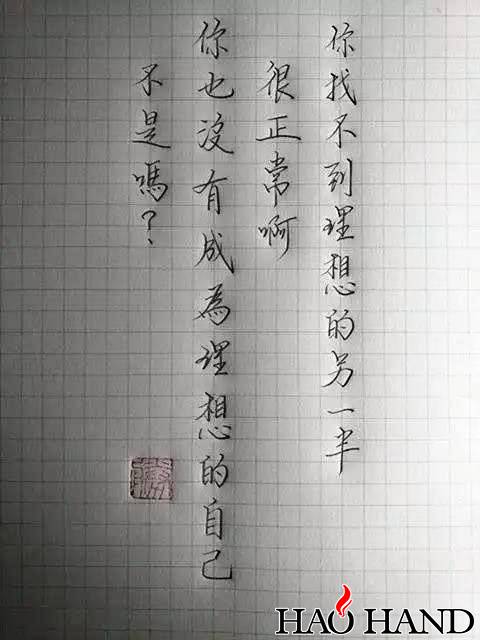 你找不到理想的另一半
很正常啊
你也沒有成為理想的自己
不是嗎？
HAO HAND